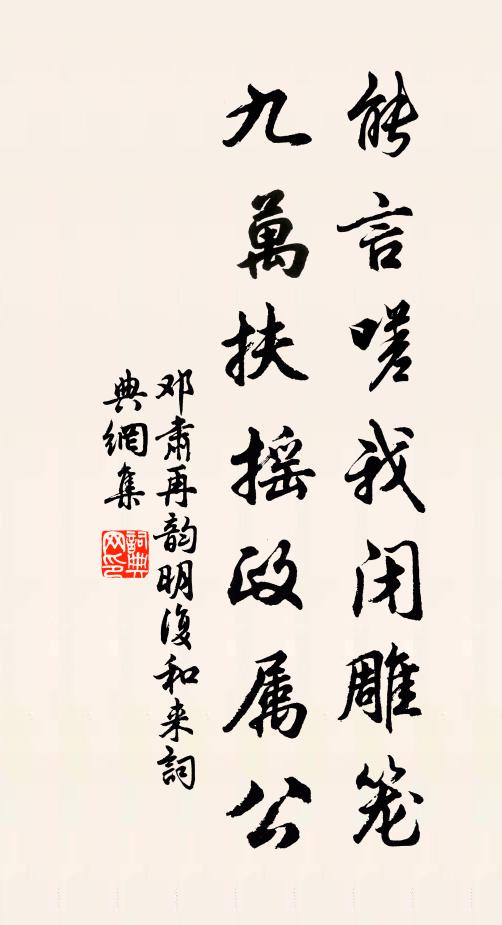 能言嗟我闭雕笼
九萬扶摇政属公
邓肃再韵明復和来詞
典網集
詞典网印